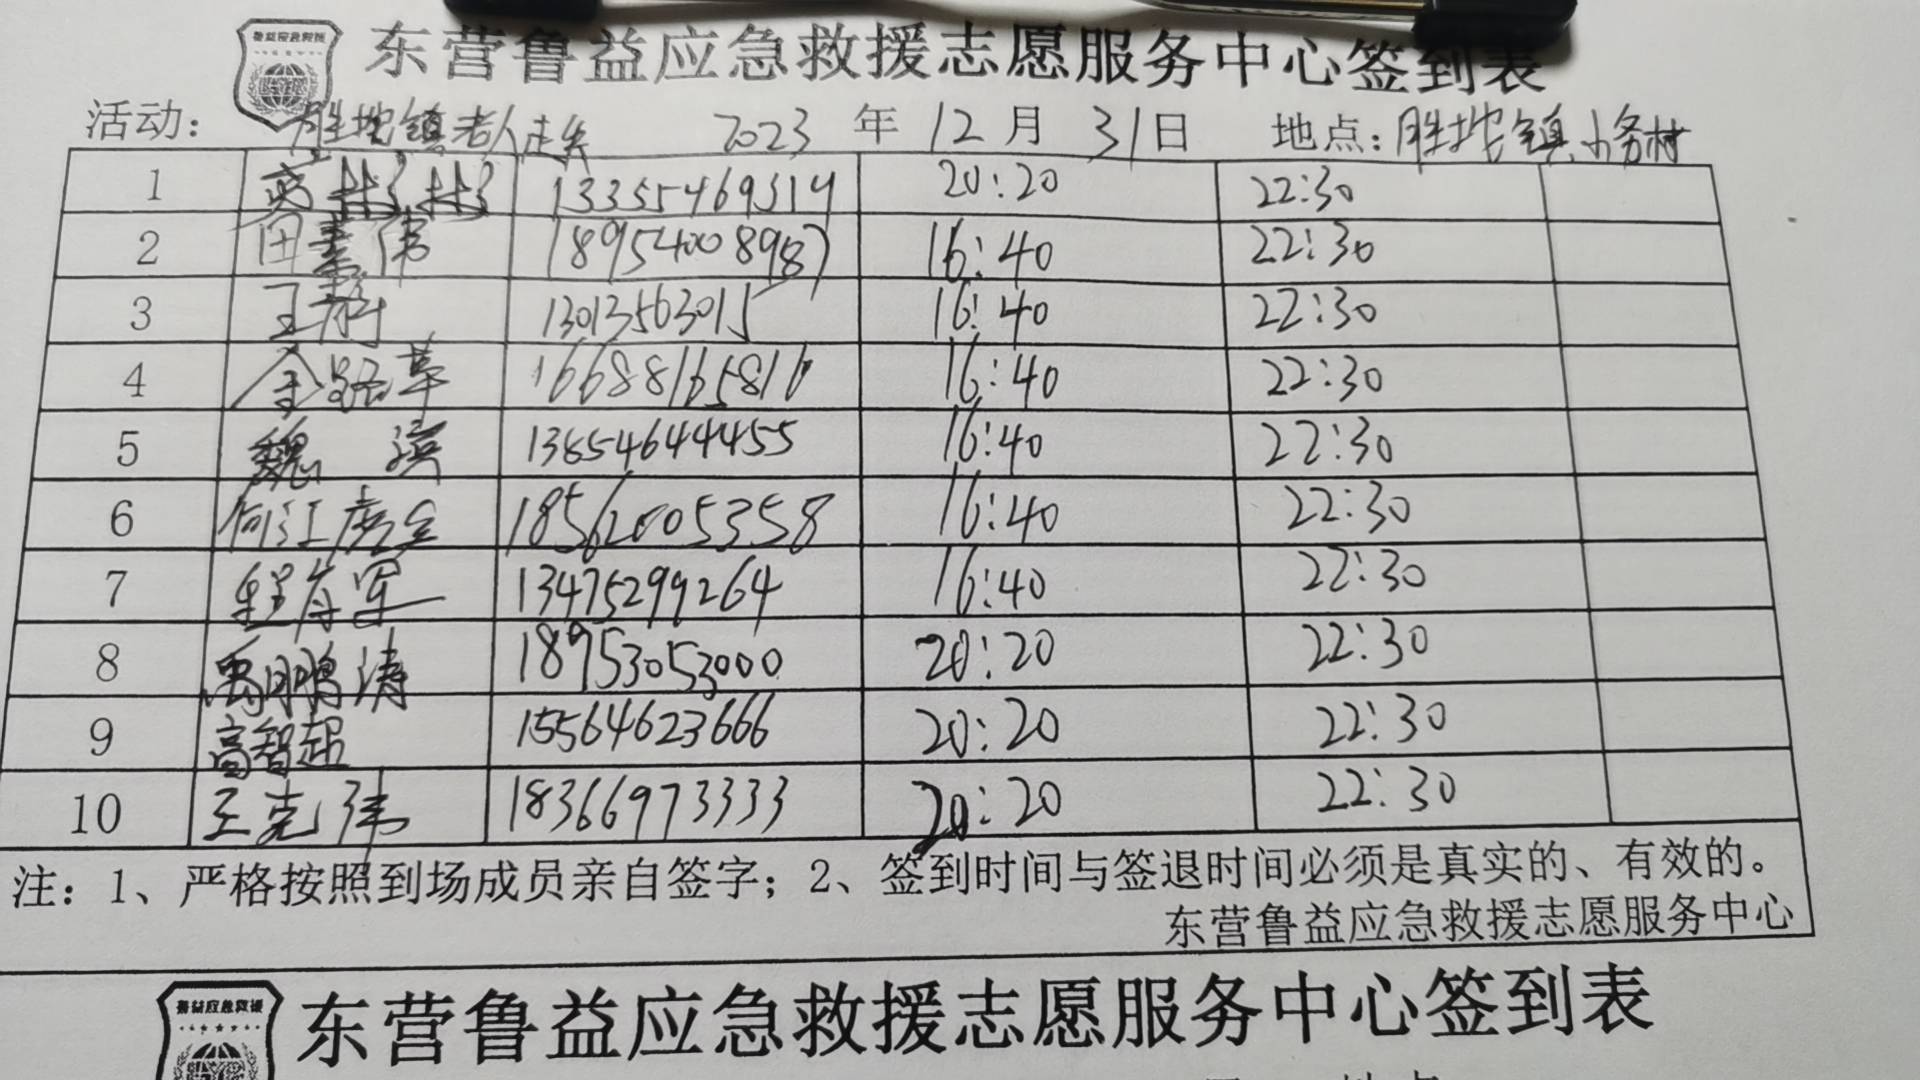 鲁益应急救援
东营鲁益应急救援志愿服务中心签到表
活动: 胜坨镇老人走失 2023 年 12 月 31 日 地点: 胜坨镇小务村
1 林林 13355469314 20:20 22:30
2 田素伟 18954008987 16:40 22:30
3 王科 13013563015 16:40 22:30
4 金路革 16688165816 16:40 22:30
5 魏滨 13854644455 16:40 22:30
6 何江 18562005358 16:40 22:30
7 程军 13475299264 16:40 22:30
8 禹鹏涛 18953053000 20:20 22:30
9 高智超 15564623666 20:20 22:30
10 王克伟 18366973333 20:20 22:30
注: 1、严格按照到场成员亲自签字; 2、签到时间与签退时间必须是真实的、有效的。
东营鲁益应急救援志愿服务中心
鲁益应急救援
东营鲁益应急救援志愿服务中心签到表